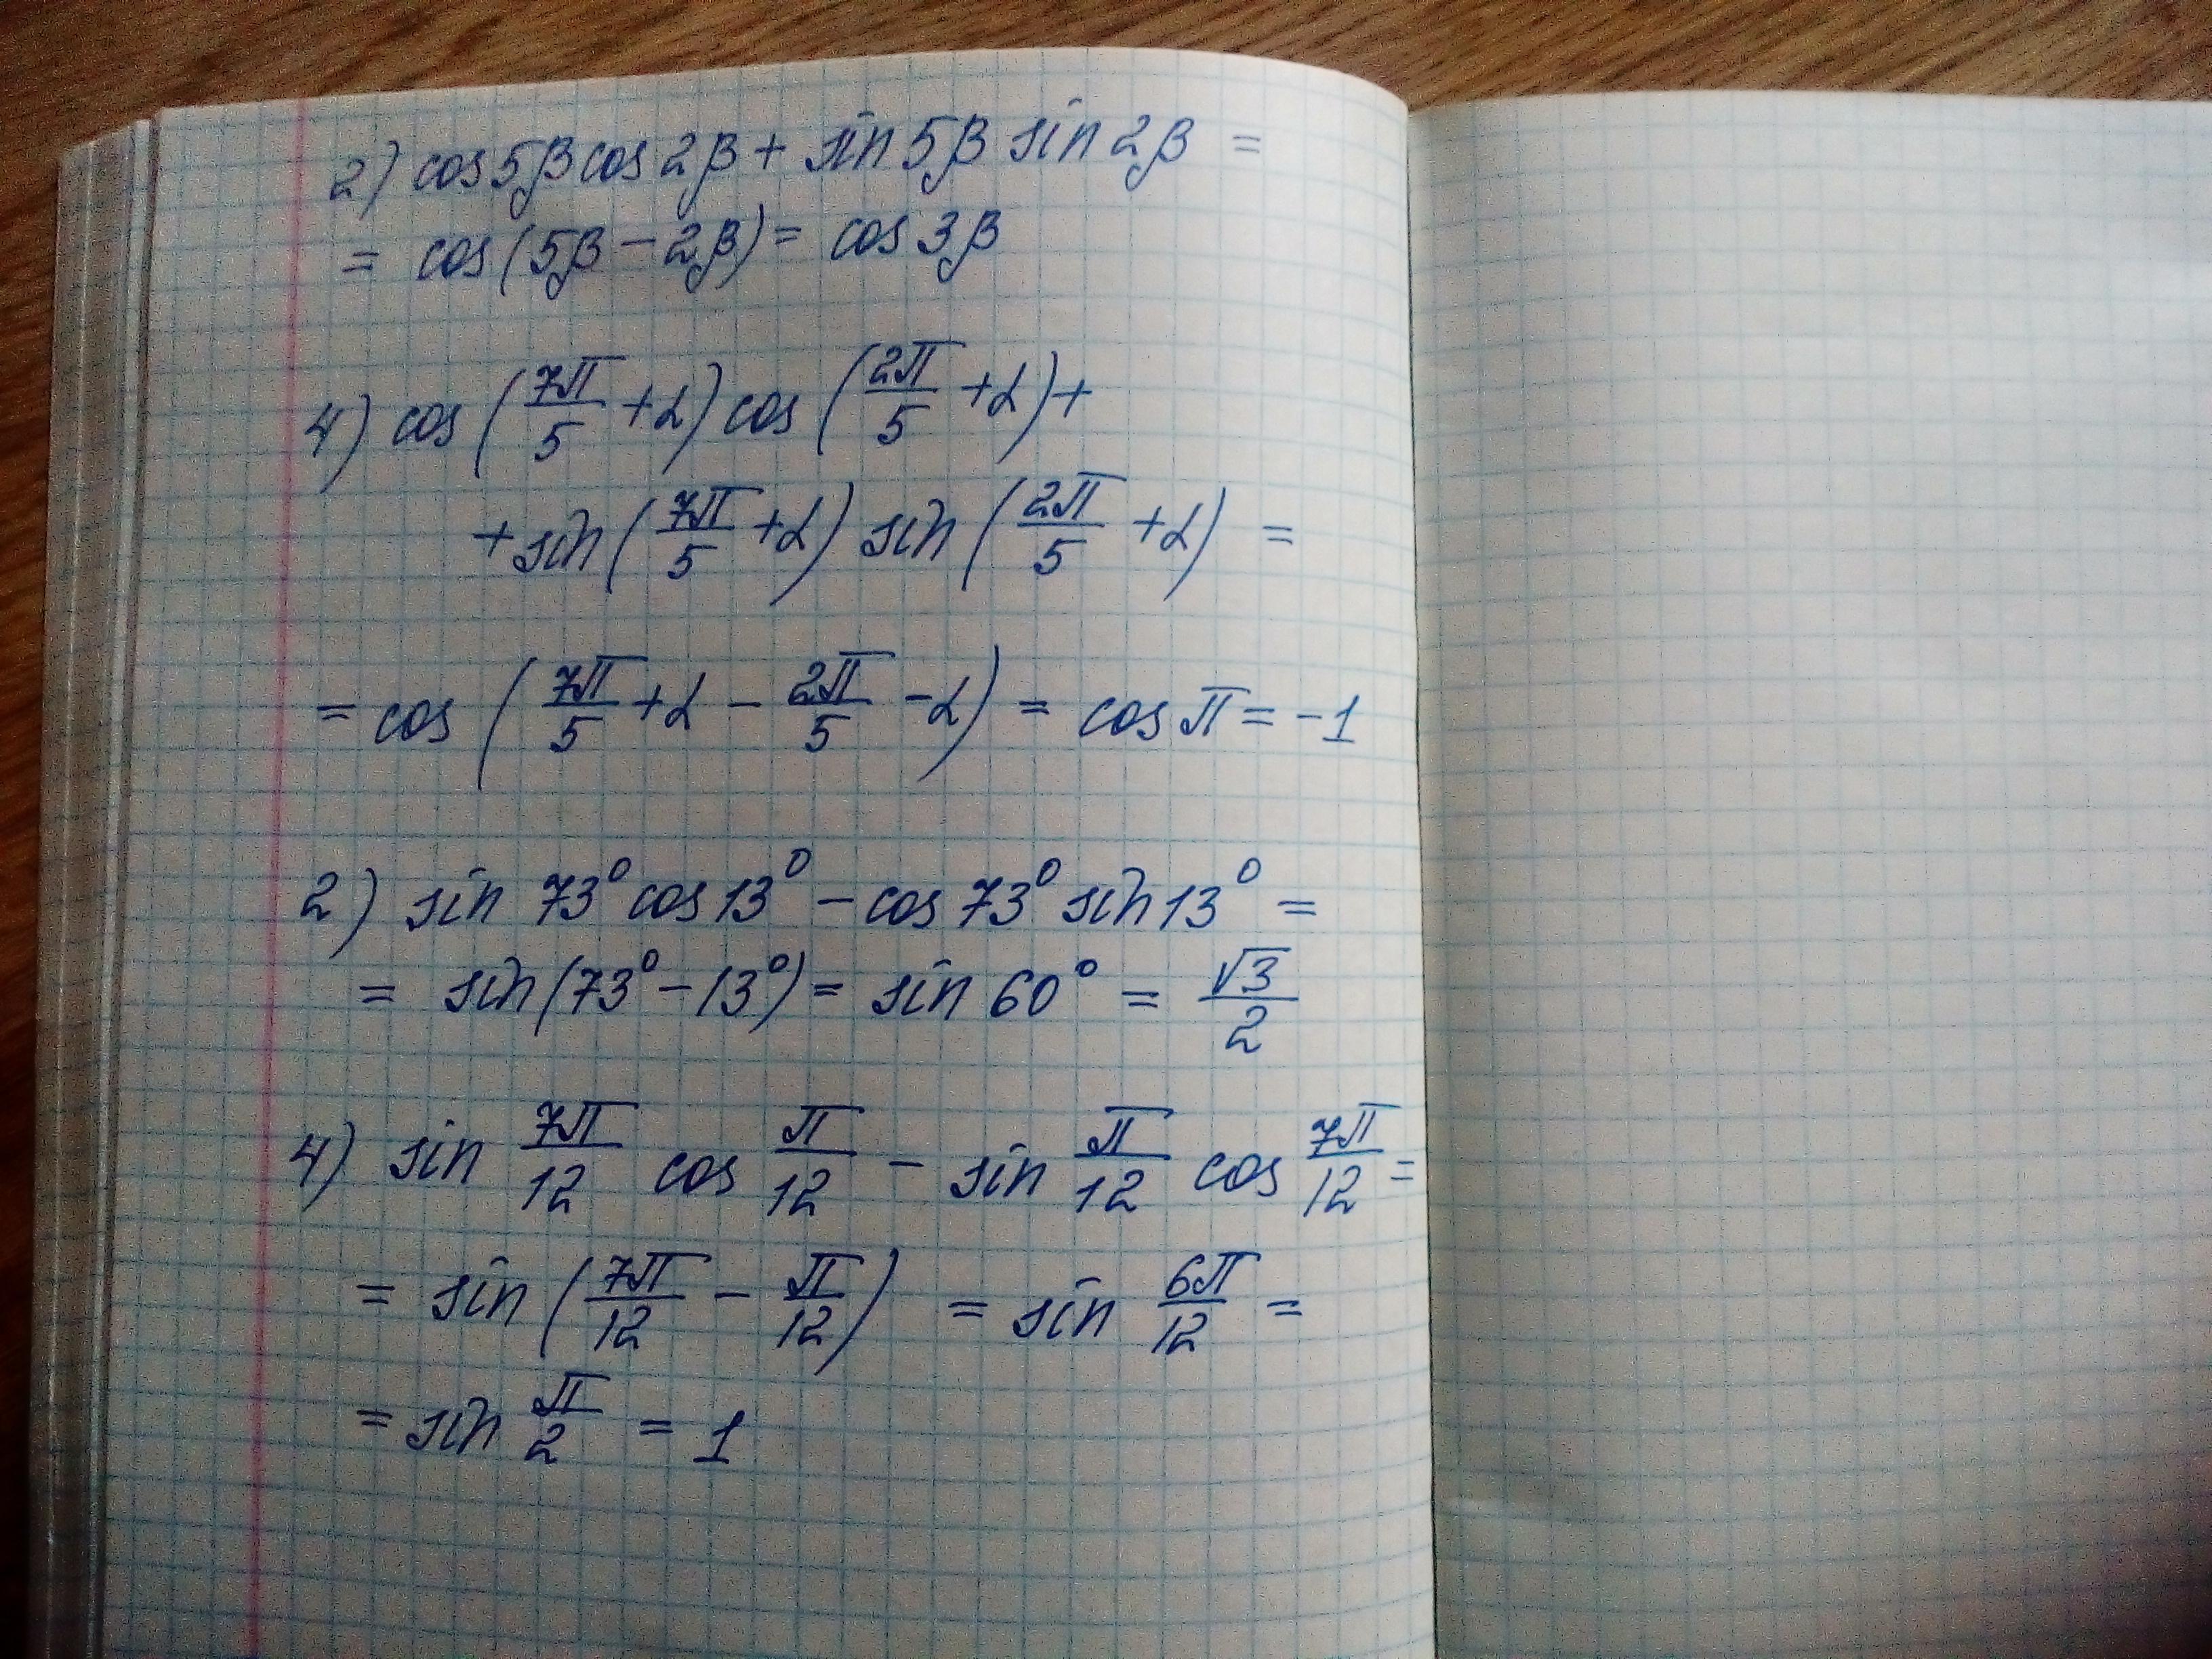 2) cos 5β cos 2β + sin 5β sin 2β =
= cos (5β − 2β) = cos 3β
4) cos (7π/5 + α) cos (2π/5 + α) +
+ sin (7π/5 + α) sin (2π/5 + α) =
= cos (7π/5 + α − 2π/5 − α) = cos π = −1
2) sin 73° cos 13° − cos 73° sin 13° =
= sin (73° − 13°) = sin 60° = √3/2
4) sin 7π/12 cos π/12 − sin π/12 cos 7π/12 =
= sin (7π/12 − π/12) = sin 6π/12 =
= sin π/2 = 1